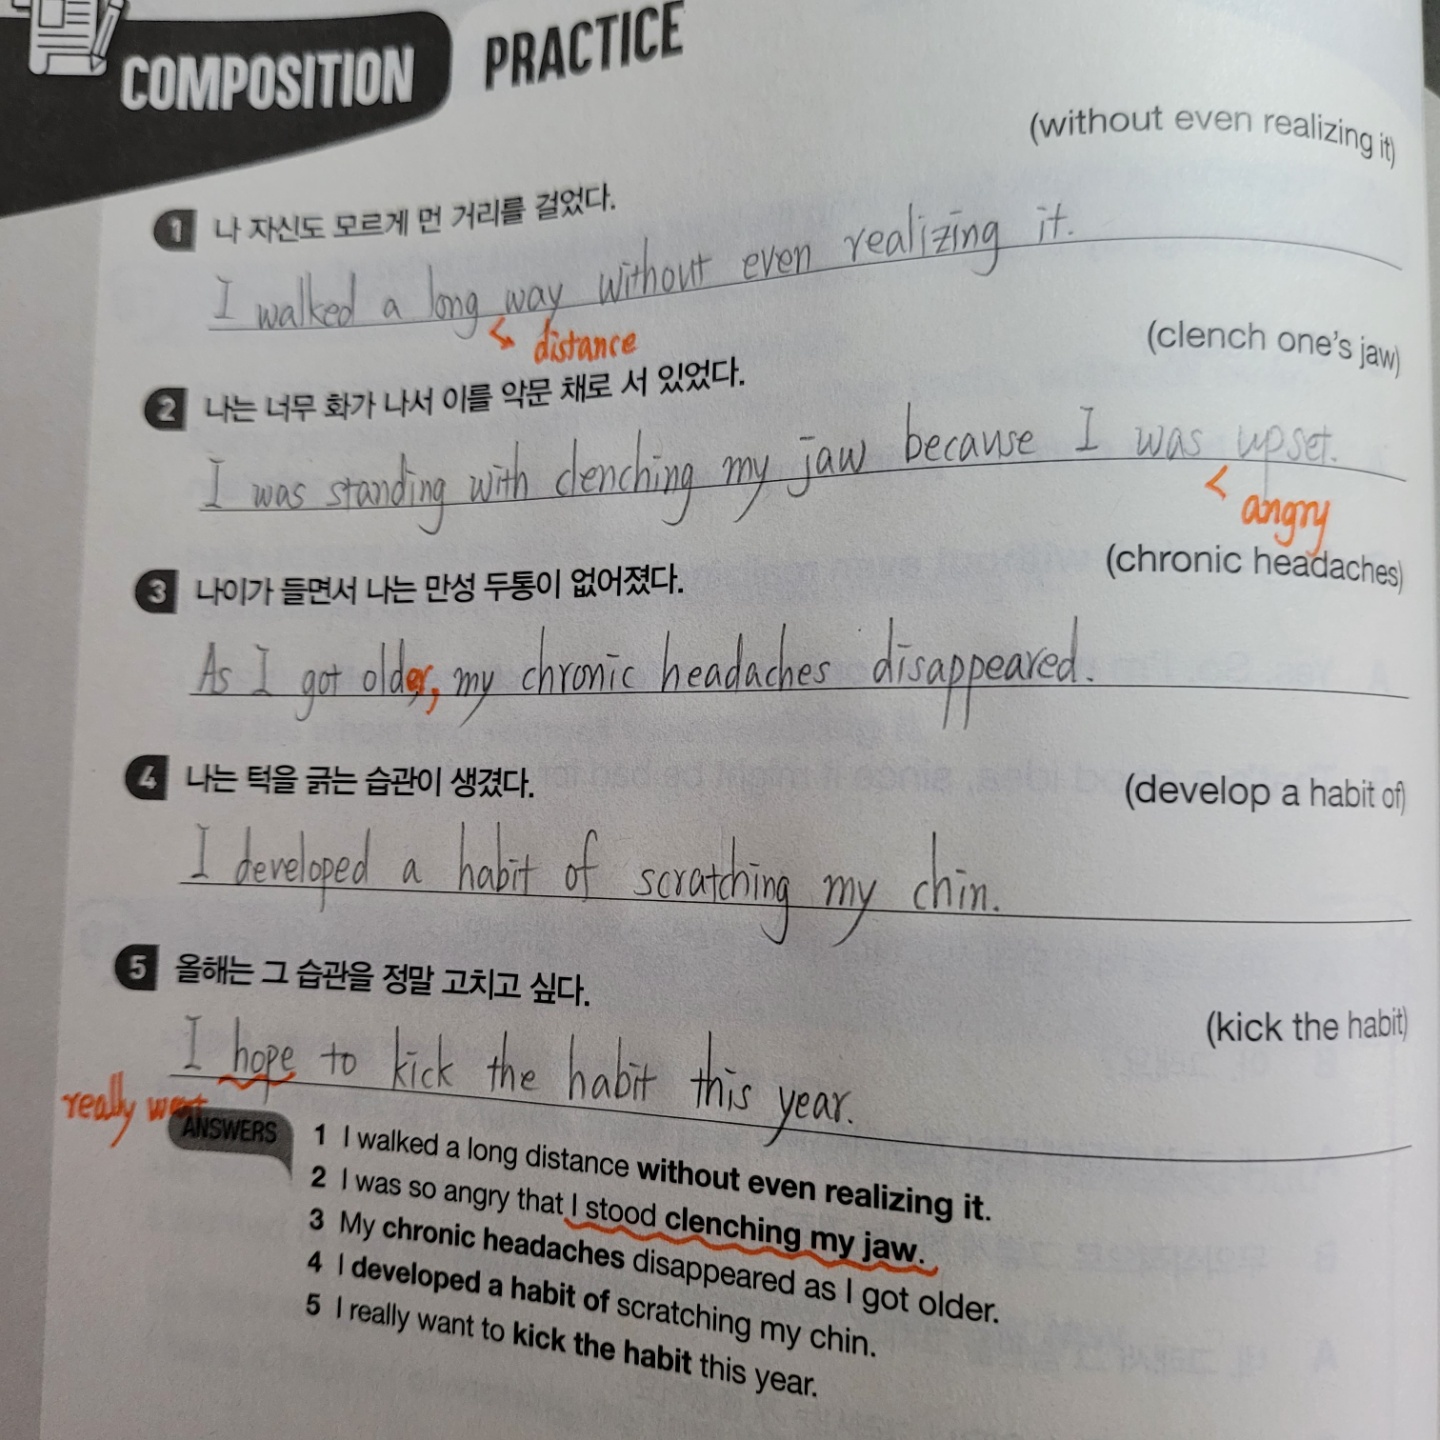 COMPOSITION PRACTICE
(without even realizing it)
1 나 자신도 모르게 먼 거리를 걸었다.
I walked a long way without even realizing it.
< distance
(clench one's jaw)
2 나는 너무 화가 나서 이를 악문 채로 서 있었다.
I was standing with clenching my jaw because I was upset.
< angry
(chronic headaches)
3 나이가 들면서 나는 만성 두통이 없어졌다.
As I got older, my chronic headaches disappeared.
4 나는 턱을 긁는 습관이 생겼다.
(develop a habit of)
I developed a habit of scratching my chin.
5 올해는 그 습관을 정말 고치고 싶다.
(kick the habit)
I hope to kick the habit this year.
really want
ANSWERS
1 I walked a long distance without even realizing it.
2 I was so angry that I stood clenching my jaw.
3 My chronic headaches disappeared as I got older.
4 I developed a habit of scratching my chin.
5 I really want to kick the habit this year.